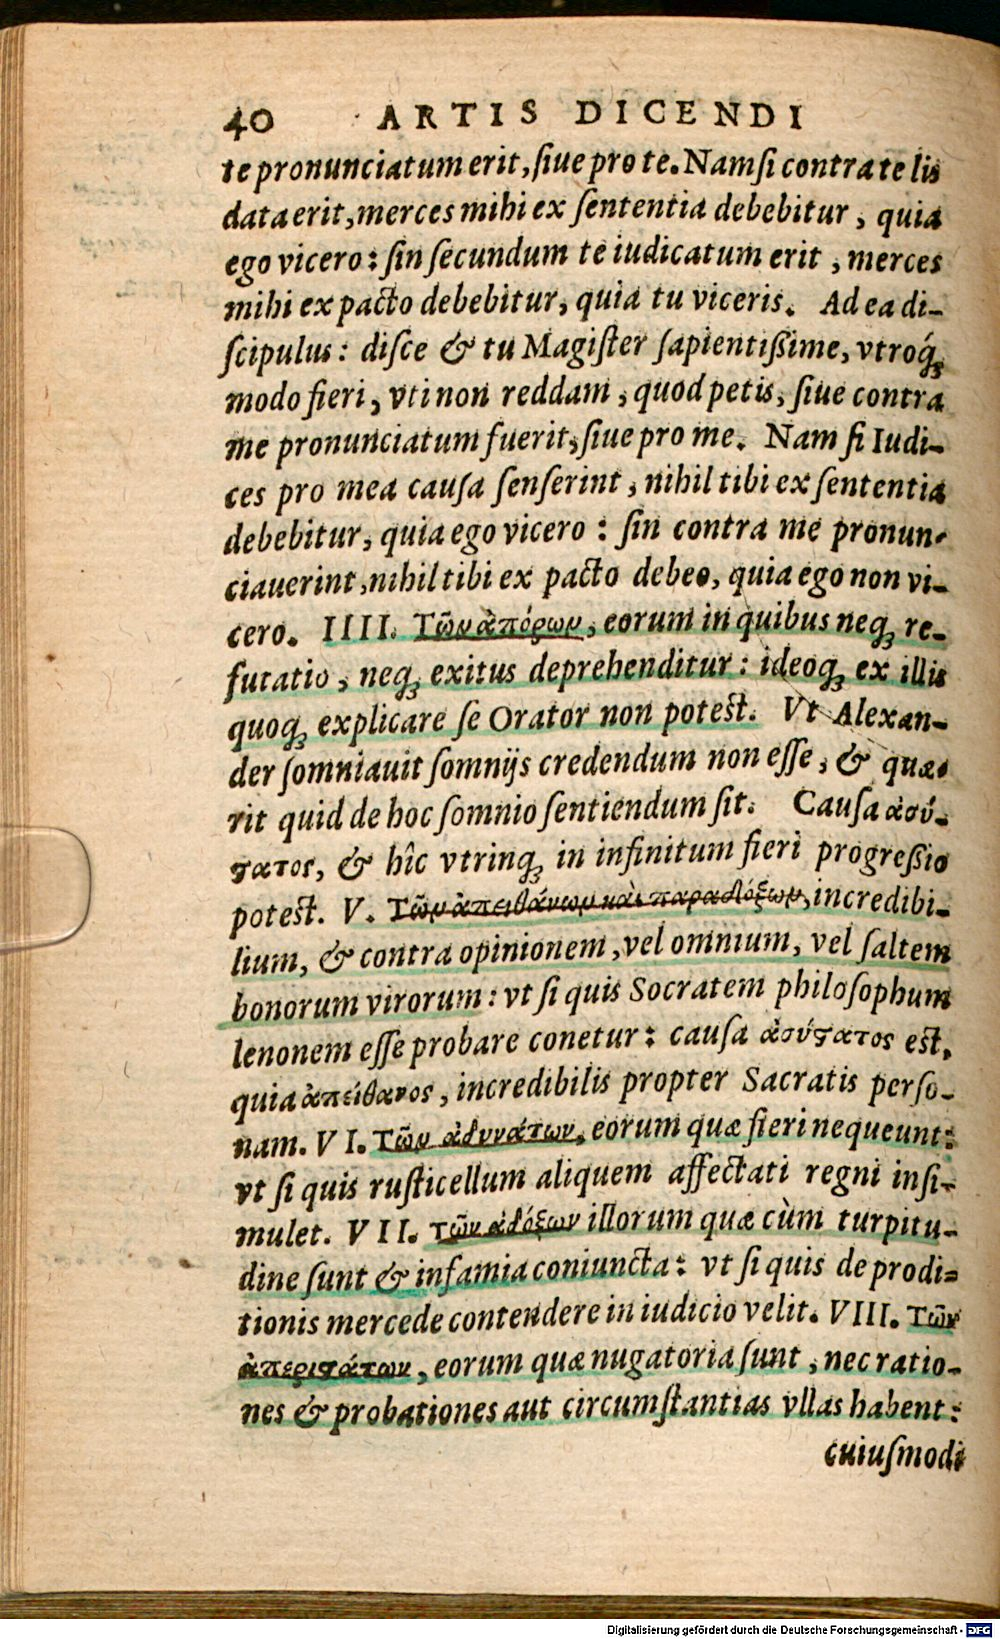 40 ARTIS DICENDI
te pronunciatum erit, ſiue pro te. Nam ſi contra te lis
data erit, merces mihi ex ſententia debebitur, quia
ego vicero: ſin ſecundum te iudicatum erit, merces
mihi ex pacto debebitur, quia tu viceris. Ad ea di-
ſcipulus: diſce & tu Magiſter ſapientißime, vtroq́ꝫ
modo fieri, vti non reddam, quod petis, ſiue contra
me pronunciatum fuerit, ſiue pro me. Nam ſi Iudi-
ces pro mea cauſa ſenſerint, nihil tibi ex ſententia
debebitur, quia ego vicero: ſin contra me pronun-
ciauerint, nihil tibi ex pacto debeo, quia ego non vi-
cero. IIII. Τῶν ἀπόρων, eorum in quibus neqꝫ re-
futatio, neqꝫ exitus deprehenditur: ideoqꝫ ex illis
quoqꝫ explicare ſe Orator non poteſt. Vt Alexan-
der ſomniauit ſomnijs credendum non eſſe, & quæ-
rit quid de hoc ſomnio ſentiendum ſit. Cauſa ἀσύ-
ϛατος, & hîc vtrinqꝫ in infinitum fieri progreßio
poteſt. V. Τῶν ἀπειθάνων καὶ παραδόξων, incredibi-
lium, & contra opinionem, vel omnium, vel ſaltem
bonorum virorum: vt ſi quis Socratem philoſophum
lenonem eſſe probare conetur: cauſa ἀσύϛατος eſt,
quia ἀπείθανος, incredibilis propter Sacratis perſo-
nam. VI. Τῶν ἀδυνάτων, eorum quæ fieri nequeunt:
vt ſi quis ruſticellum aliquem affectati regni inſi-
mulet. VII. τῶν ἀδόξων illorum quæ cùm turpitu-
dine ſunt & infamia coniuncta: vt ſi quis de prodi-
tionis mercede contendere in iudicio velit. VIII. Τῶν
ἀπεριϛάτων, eorum quæ nugatoria ſunt, nec ratio-
nes & probationes aut circumſtantias vllas habent:
cuiuſmodi
Digitalisierung gefördert durch die Deutsche Forschungsgemeinschaft - DFG